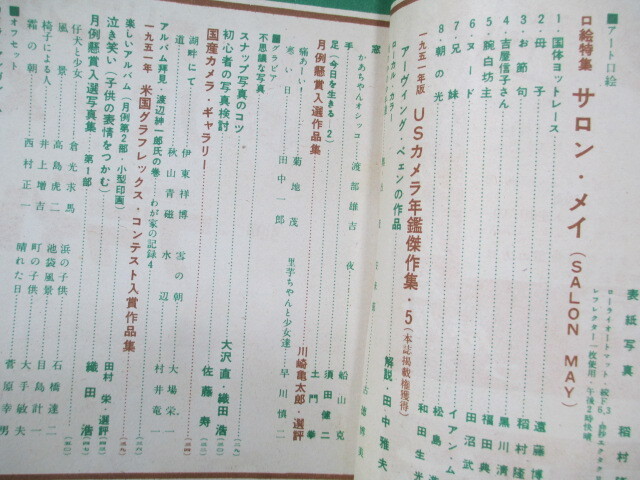 表紙写真
稲村隆
ローライオートマット・絞5.6
レフレクター一枚使用・午後2時快晴
■アート口絵
口絵特集 サロン・メイ(SALON MAY)
1・国体ヨットレース 遠藤博
2・母子 稲村隆
3・お節句 黒川清
4・吉屋信子さん 福田典
5・腕白坊主 田沼武
6・ヌード イアン・ム
7・兄妹 松島
8・朝の光 和田生光
一九五一年版 USカメラ年鑑傑作集・5(本誌掲載権獲得)
アーヴィング・ペンの作品 解説・田中雅夫
かあちゃんオシッコ 渡部雄吉
夜
手 船山克
足(今日を生きる 2) 須田健二
土門拳
月例懸賞入選作品集 川崎亀太郎・選評
痛あーい 菊池茂
寒い日 田中一郎
里芋ちゃんと少女達 早川慎二
■グラビア
不思議な写真
スナップ写真のコツ 大沢直・織田浩
初心者の写真検討 佐藤寿
国産カメラ・ギャラリー
湖畔にて 伊東祥博
道 秋山青磁
雲の朝 大場栄一
水辺 村井竜一
アルバム拝見・渡辺紳一郎氏の巻 わが家の記録4
一九五一年 米国グラフレックス・コンテスト入賞作品集
楽しいアルバム(月例第2部・小型印画)
泣き笑い(子供の表情をつかむ) 織田浩
月例懸賞入選写真集 第1部 田村栄・選評
仔犬と少女 倉光求馬
風景 高島虎二
椅子による人 井上増吉
霜の朝 西村正一
浜の子供 石橋達二
池袋風景 目島計一
町の子供 大手敏夫
晴れた日 菅原幸男
■オフセット